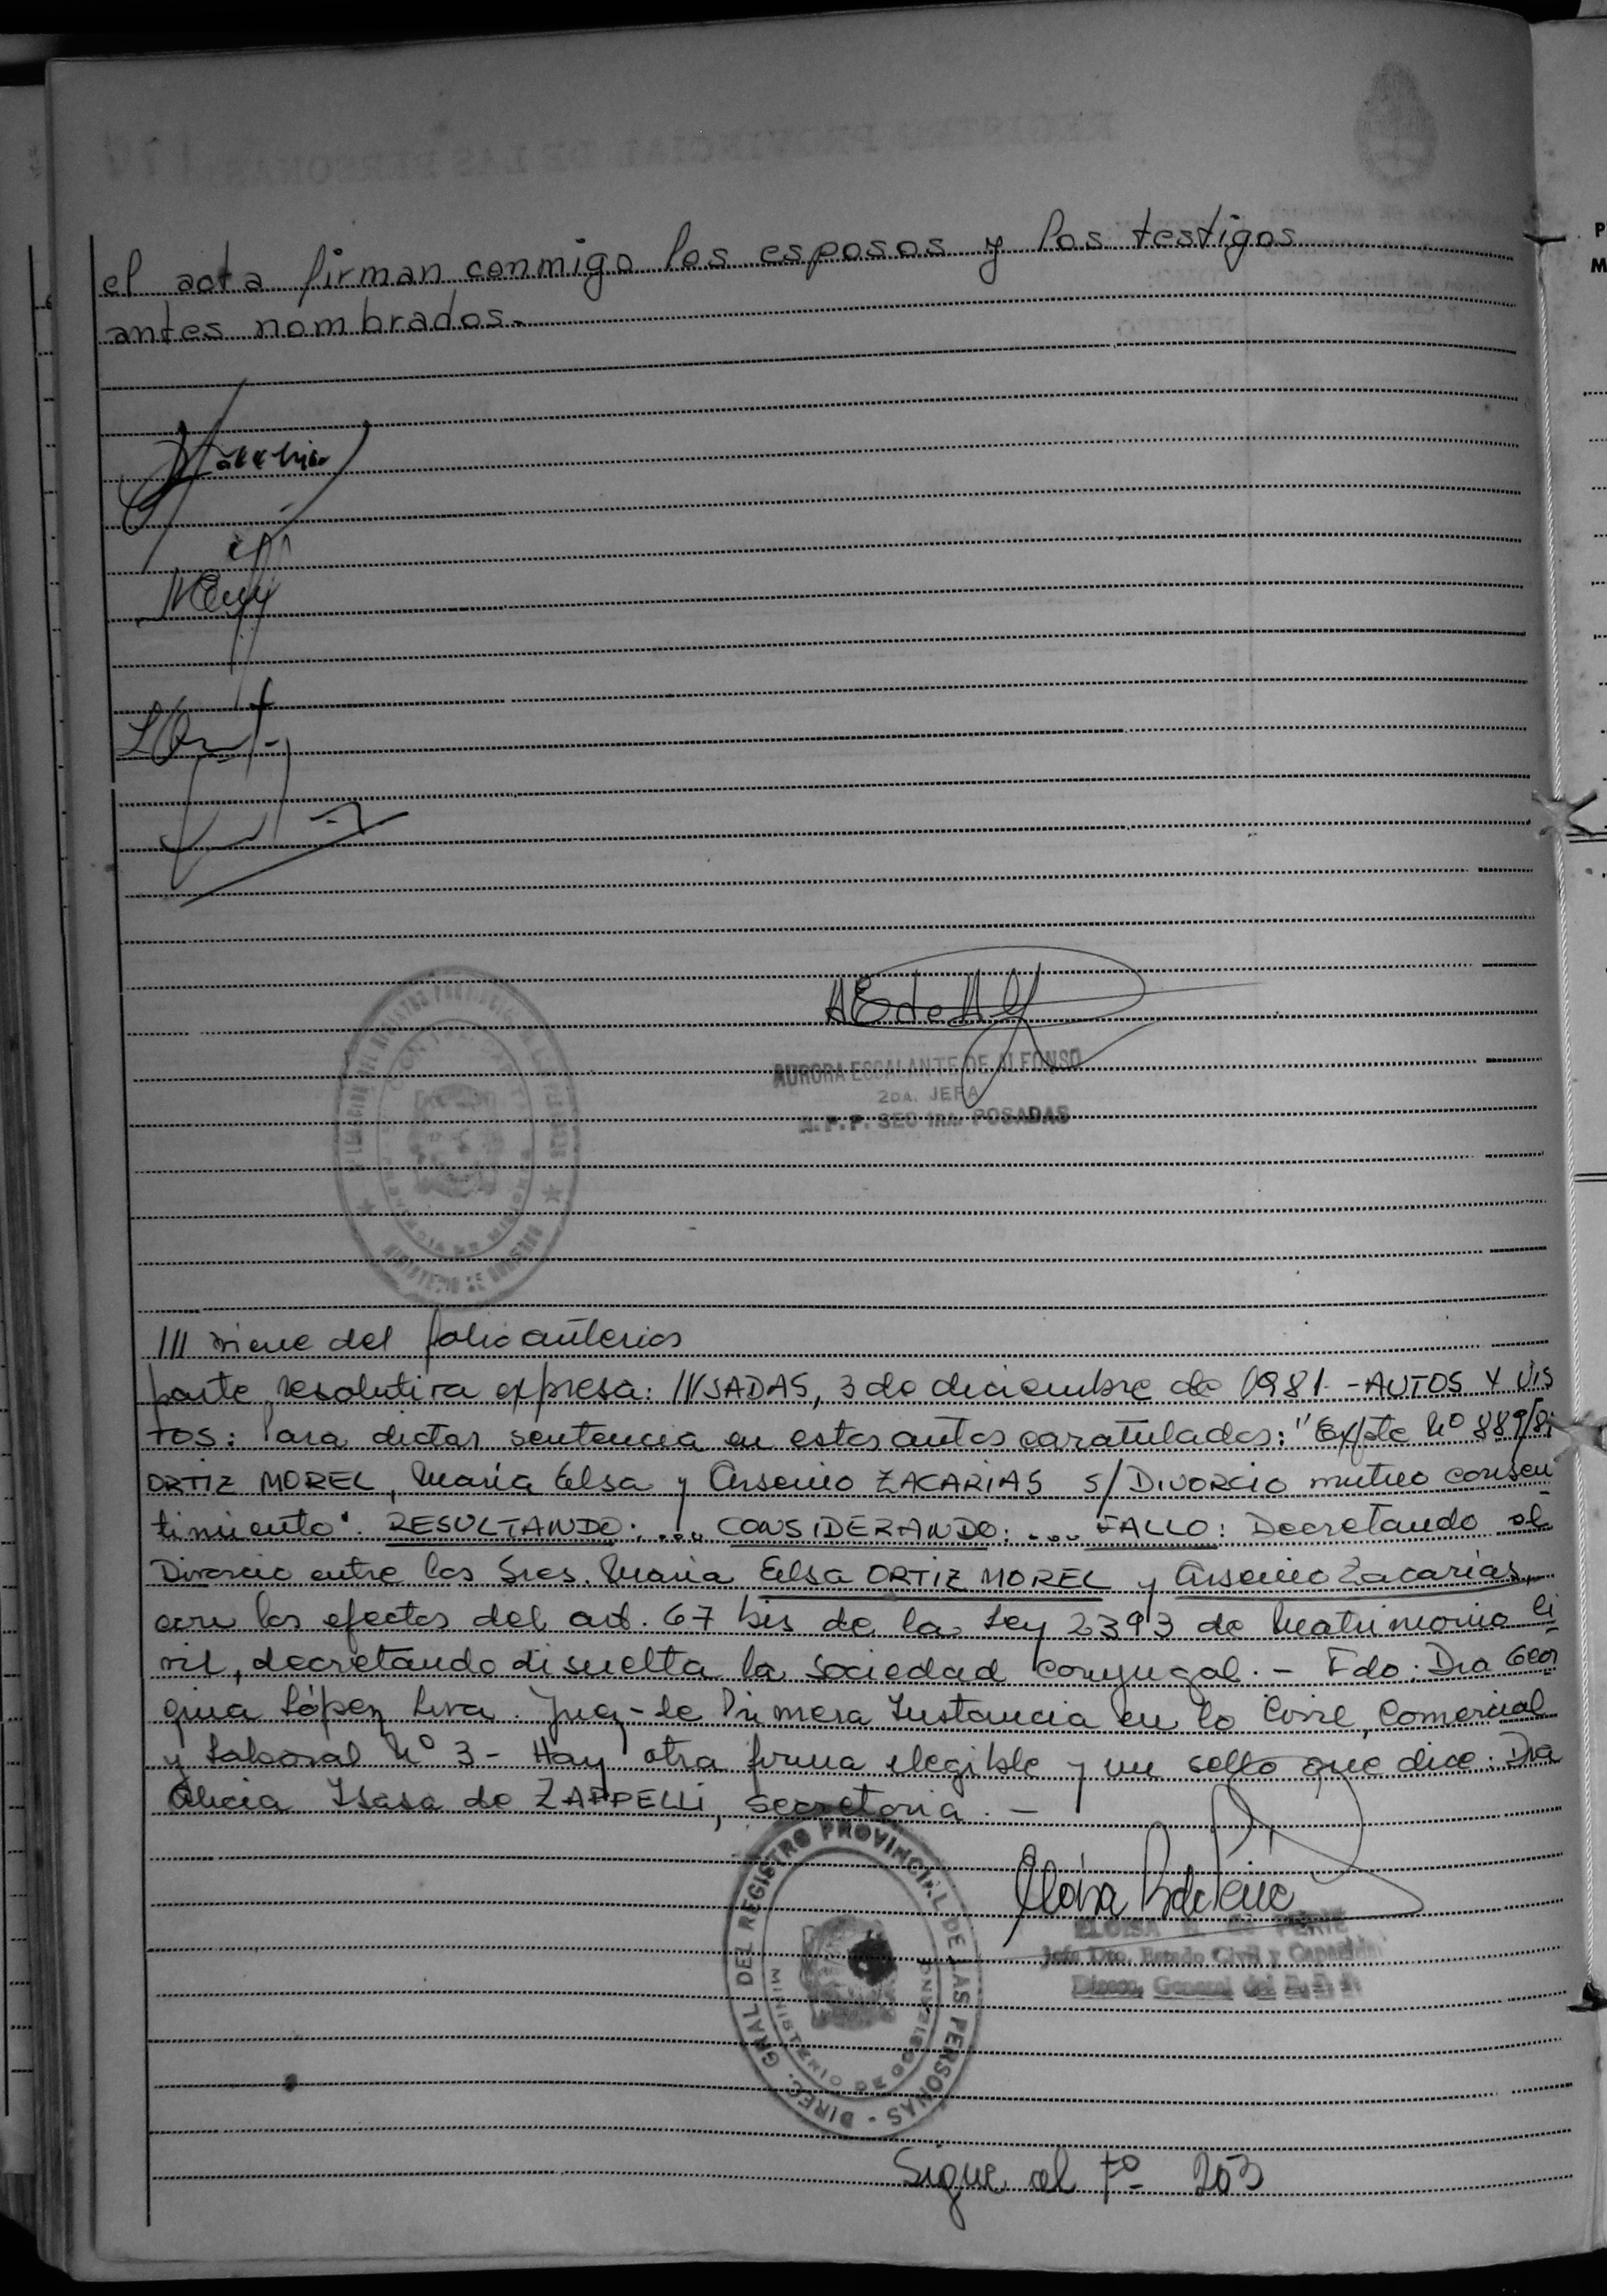 el acta firman conmigo los esposos y los testigos
antes nombrados.-
AURORA ESCALANTE DE ALFONSO
2DA. JEFA
R.P.P. SEC 1RA. POSADAS
/// viene del folio anterior
parte resolutiva expresa: POSADAS, 3 de diciembre de 1981.- AUTOS Y VIS
TOS: Para dictar sentencia en estos autos caratulados: "Expte Nº 889/81
ORTIZ MOREL, María Elsa y Arsenio ZACARIAS s/ DIVORCIO mutuo consen
timiento". RESULTANDO: .... CONSIDERANDO: .... FALLO: Decretando el
Divorcio entre los Sres. María Elsa ORTIZ MOREL y Arsenio Zacarías,
con los efectos del art. 67 bis de la Ley 2393 de Matrimonio Ci
vil, decretando disuelta la sociedad conyugal.- Fdo: Dra Geor
gina López Liva. Juez de Primera Instancia en lo Civil, Comercial
y Laboral Nº 3 - Hay otra firma ilegible y un sello que dice: Dra
Alicia Isasa de ZAPPELLI, secretaria.-
DIREC. GRAL. DEL REGISTRO PROVINCIAL DE LAS PERSONAS
MINISTERIO DE GOBIERNO
ELOISA B. de PERIE
Jefa Dto. Estado Civil y Capacidad
Direcc. General del R. P. P.
Sigue al Fº 203